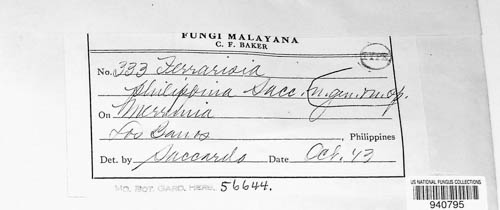 FUNGI MALAYANA
C. F. BAKER
TYPE
No. 333 Ferrarisia
philippina Sacc. n. gen. n. sp.
On Merremia
Los Banos, Philippines
Det. by Saccardo Date Oct. '13
MO. BOT. GARD. HERB. 56644.
US NATIONAL FUNGUS COLLECTIONS
940795